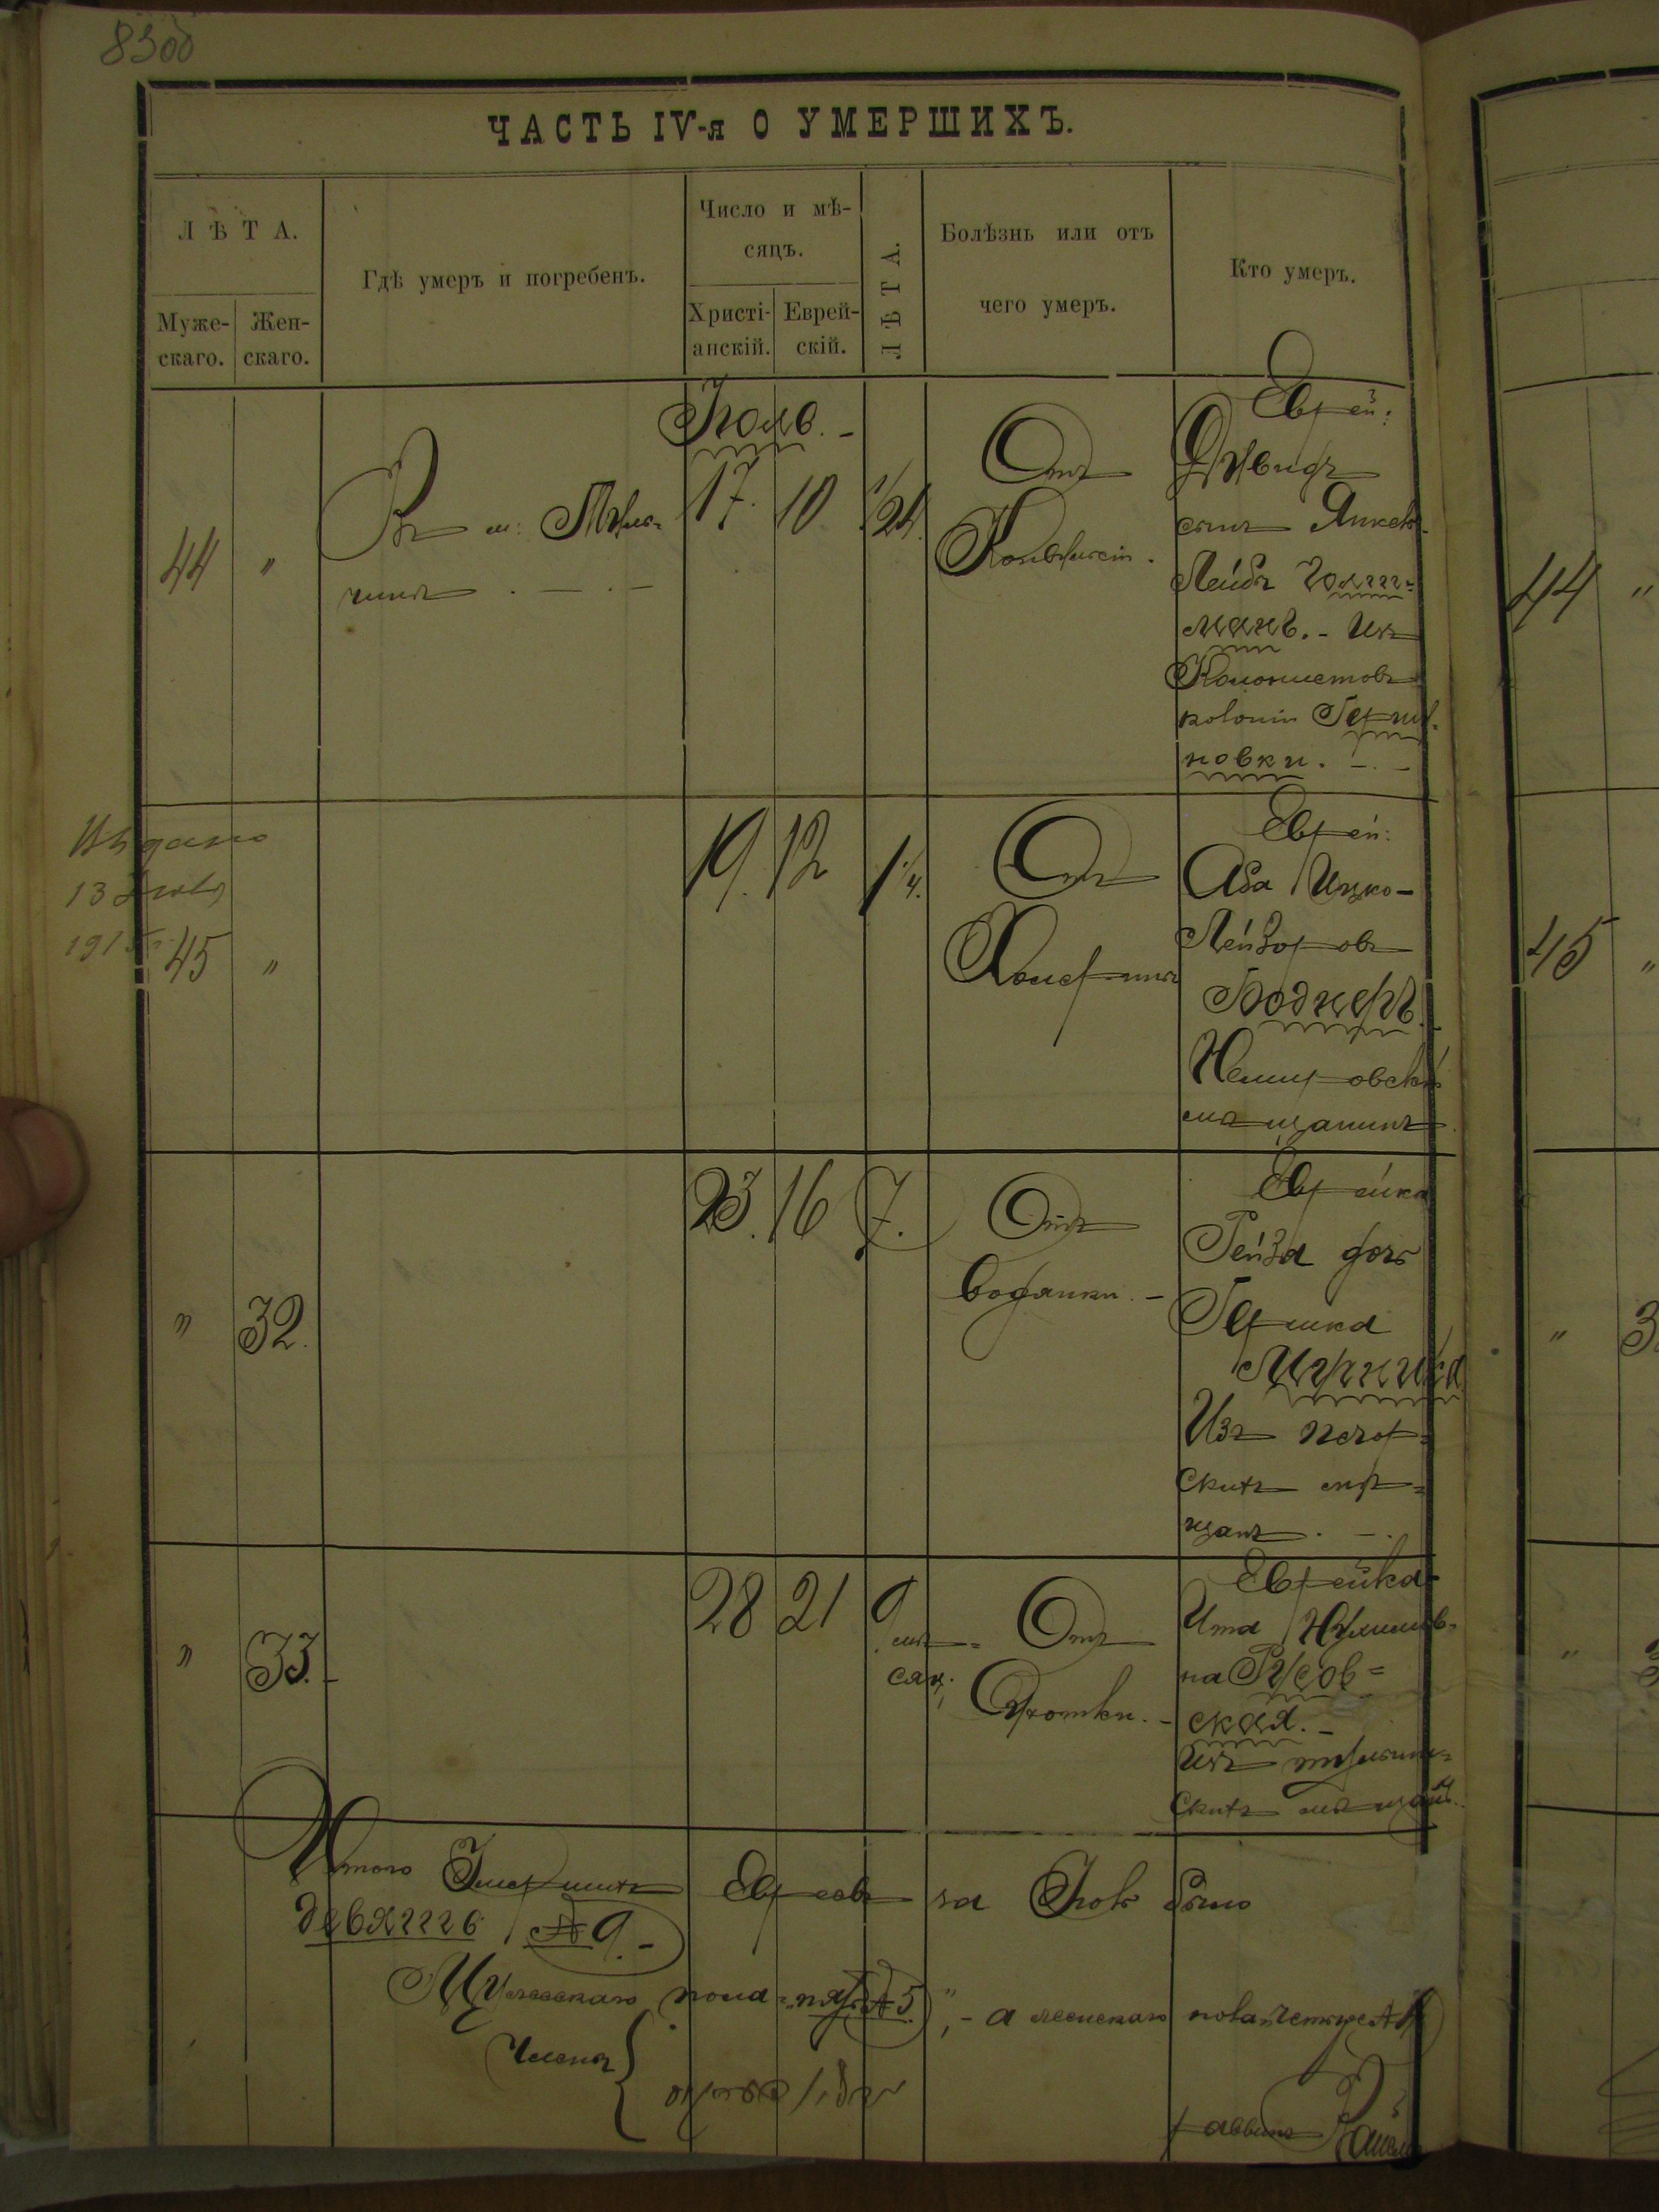 83об
ЧАСТЬ IV-я О УМЕРШИХЪ.
ЛѢТА.
Муже-
скаго.
Жен-
скаго.
Гдѣ умеръ и погребенъ.
Число и мѣ-
сяцъ.
Христі-
анскій.
Еврей-
скій.
ЛѢТА.
Болѣзнь или отъ
чего умеръ.
Кто умеръ.
Іюль. -
44
"
Въ м:
чинѣ . — . —
17.
10
1/24
Отъ
Еврей:
Давидъ
сынъ Янкель
Лейбъ Голт=
манъ. - Изъ
Колонистовъ
колоніи
новки. — . —
44 "
Выдано
13
191
45
"
19.
12
1 1/4.
Отъ
Холерины
Еврей:
Аба Ицко-
Лейзоровъ
Боднеръ.
Немировскій
мѣщанинъ.
45 "
"
32.
23.
16
7.
Отъ
водянки. —
Еврейка
Рейза дочь
Гершка
Мучника
Изъ печер=
скихъ мѣ=
щанъ. — .
" 3
"
33. -
28
21
9
мѣ-
сяц.
Отъ
Еврейка
Ита
на Русов=
ская. -
Изъ
скихъ мѣщанъ.
" 3
Итого Умершихъ Евреевъ за Іюль было
девять № 9. -
Мужескаго пола = пять № 5 ", - а женскаго пола четыре № 4
Члены {
раввинъ